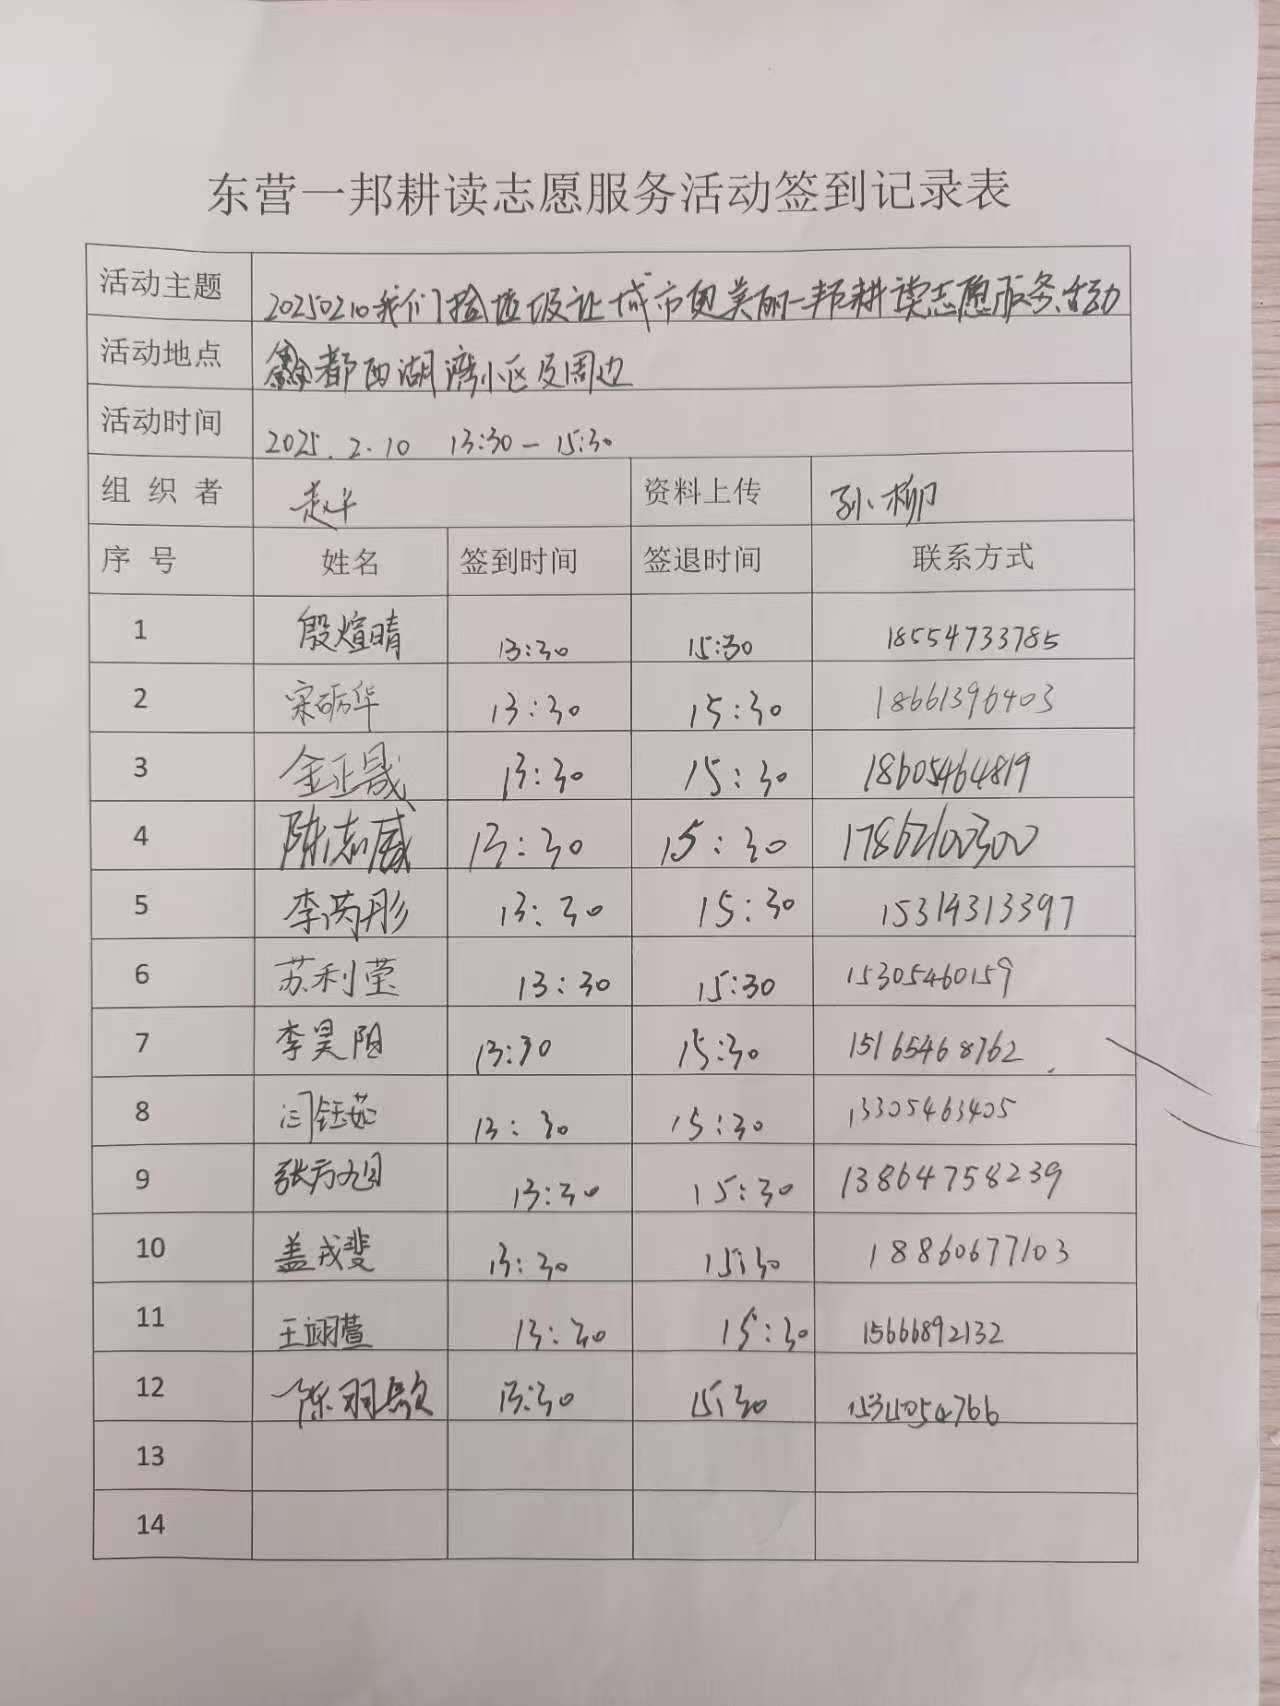 东营一邦耕读志愿服务活动签到记录表
活动主题 20250210我们捡垃圾让城市更美丽一邦耕读志愿服务活动
活动地点 鑫都西湖湾小区及周边
活动时间 2025.2.10 13:30-15:30
组织者 赵华 资料上传 孙柳
序号 姓名 签到时间 签退时间 联系方式
1 殷煊晴 13:30 15:30 18554733785
2 宋砺华 13:30 15:30 18661396403
3 金正晟 13:30 15:30 18605464819
4 陈志威 13:30 15:30 17862100300
5 李芮彤 13:30 15:30 15314313397
6 苏利莹 13:30 15:30 15305460159
7 李昊阳 13:30 15:30 15165468762
8 闫钰茹 13:30 15:30 13305463405
9 张方旭 13:30 15:30 13864758239
10 盖戎斐 13:30 15:30 18860677103
11 王翊萱 13:30 15:30 15666892132
12 陈羽 13:30 15:30
13
14